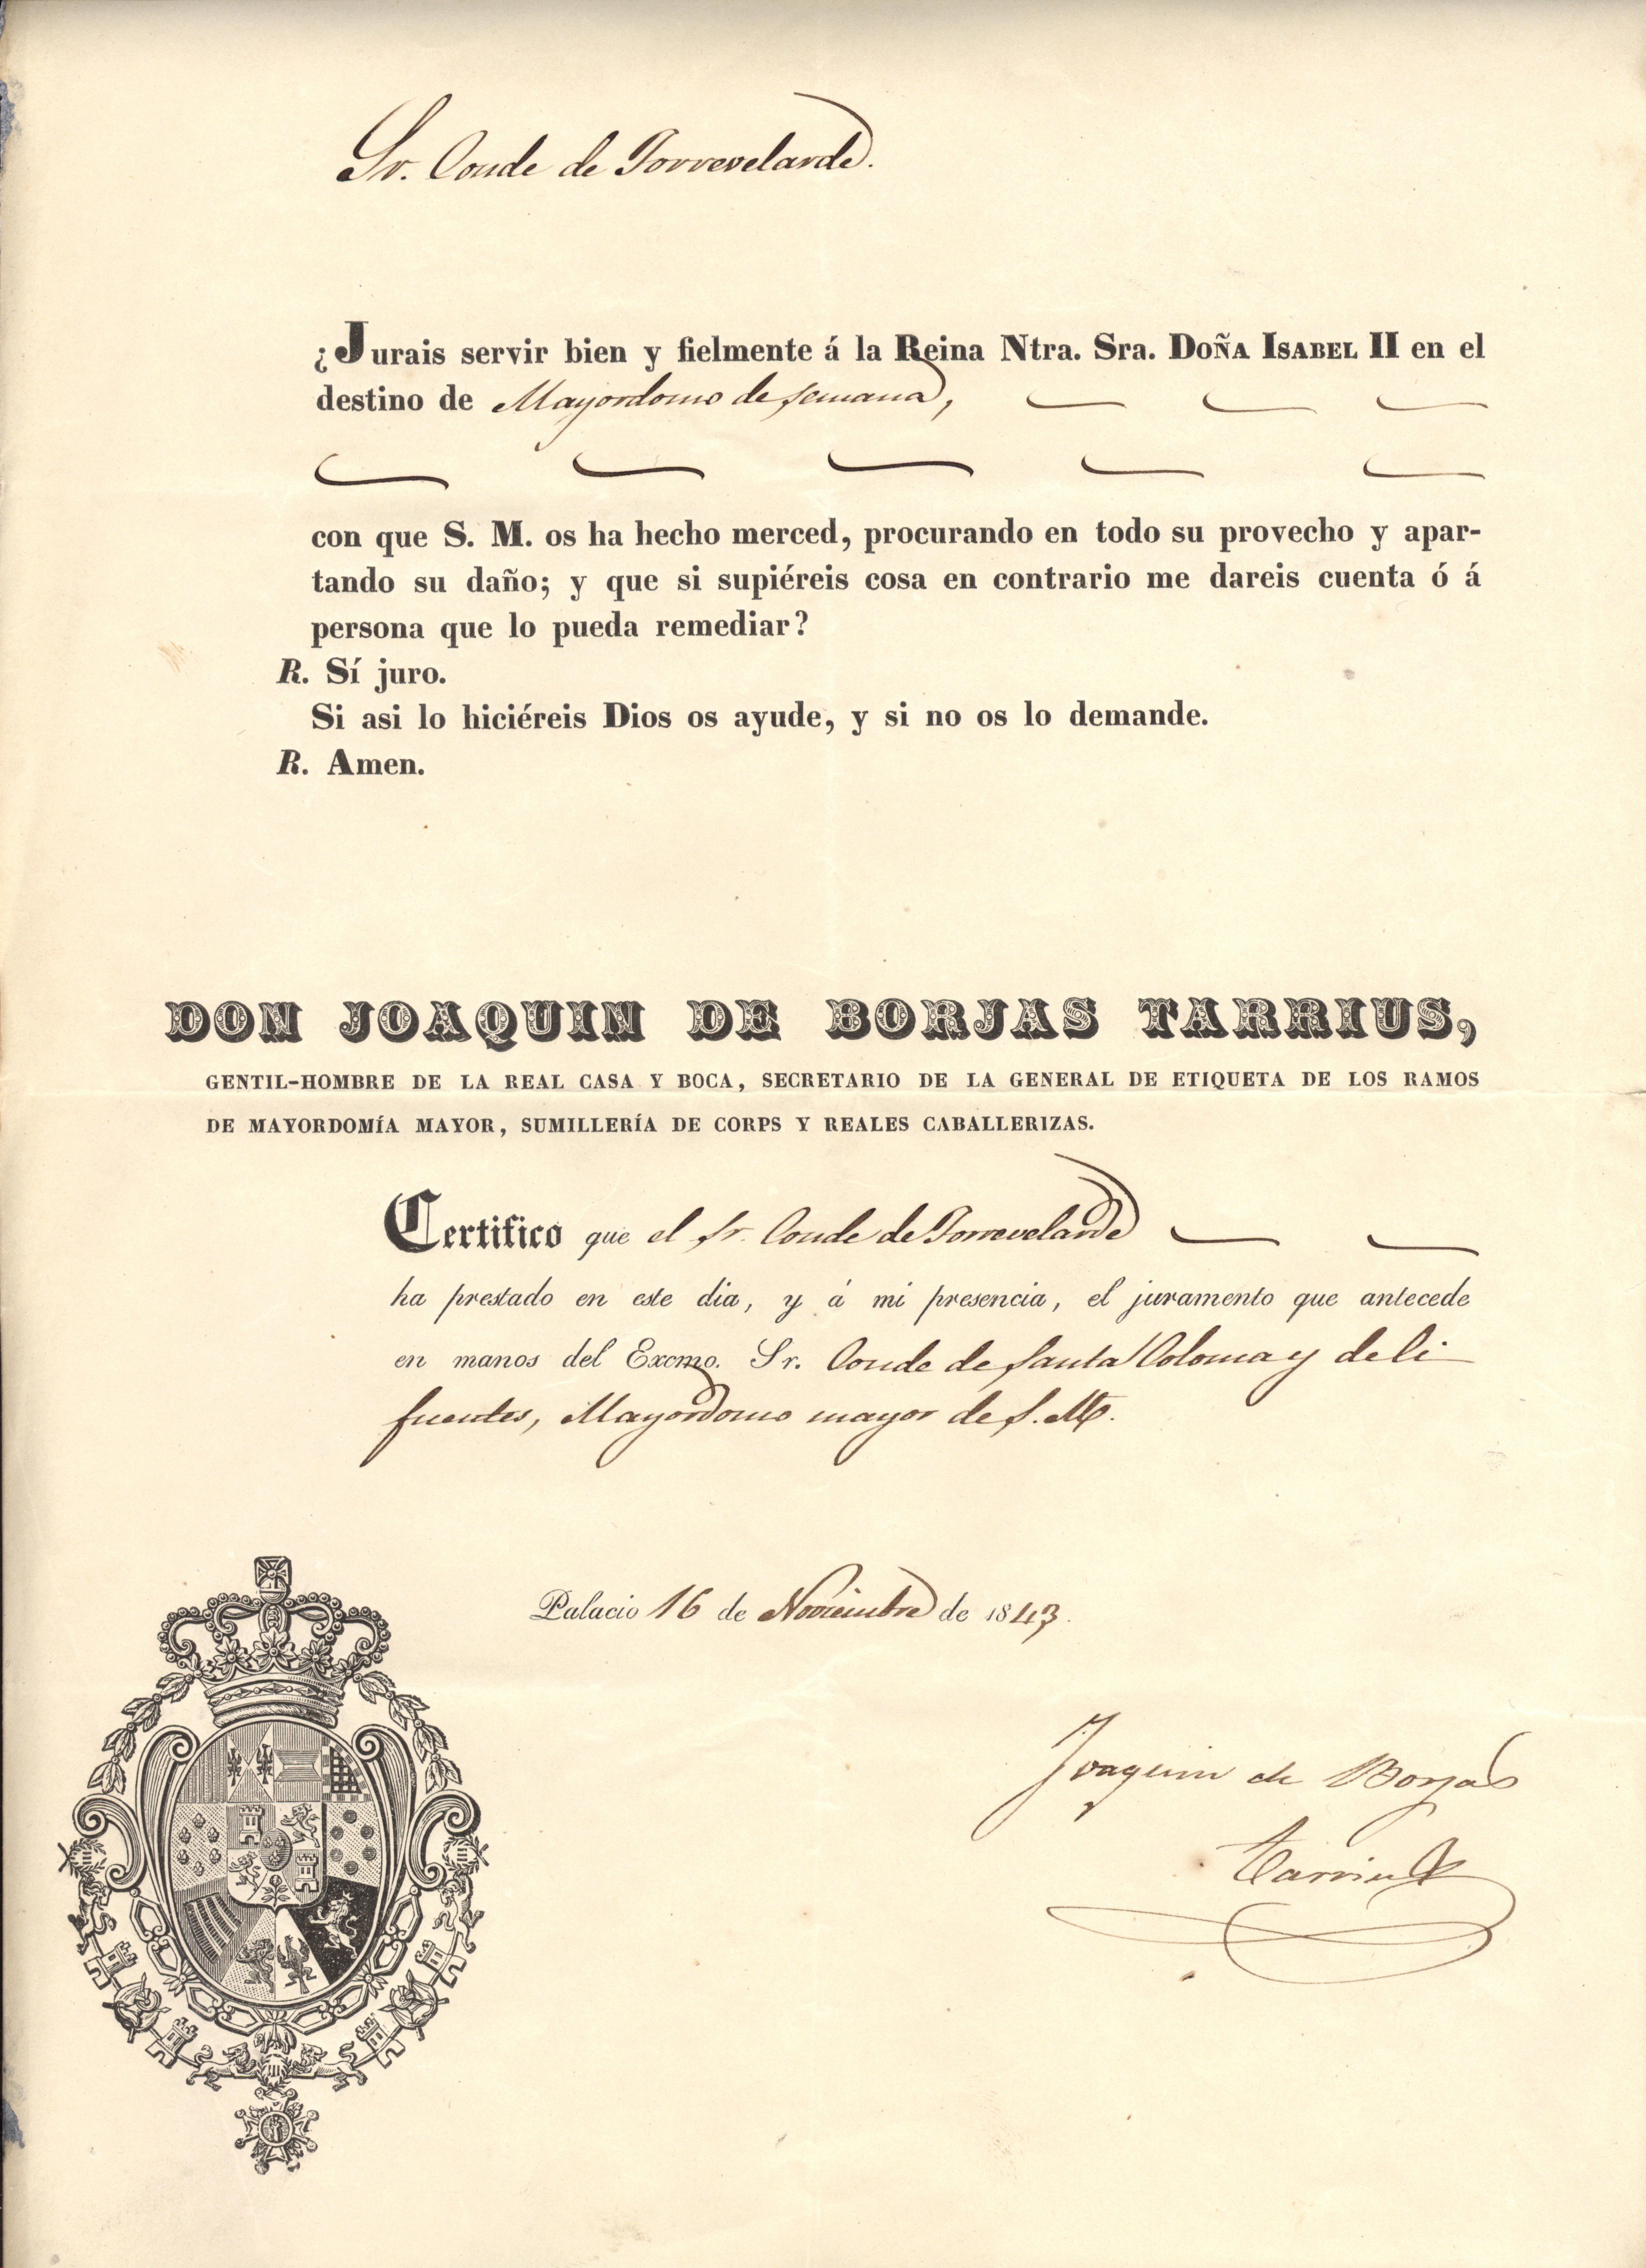 Sr. Conde de Torrevelarde.
¿Jurais servir bien y fielmente á la Reina Ntra. Sra. Doña Isabel II en el
destino de Mayordomo de semana,
con que S. M. os ha hecho merced, procurando en todo su provecho y apar-
tando su daño; y que si supiéreis cosa en contrario me dareis cuenta ó á
persona que lo pueda remediar?
R. Sí juro.
Si asi lo hiciéreis Dios os ayude, y si no os lo demande.
R. Amen.
DON JOAQUIN DE BORJAS TARRIUS,
GENTIL-HOMBRE DE LA REAL CASA Y BOCA, SECRETARIO DE LA GENERAL DE ETIQUETA DE LOS RAMOS
DE MAYORDOMÍA MAYOR, SUMILLERÍA DE CORPS Y REALES CABALLERIZAS.
Certifico que el Sr. Conde de Torrevelarde
ha prestado en este dia, y á mi presencia, el juramento que antecede
en manos del Excmo. Sr. Conde de Santa Coloma y de Ci-
fuentes, Mayordomo mayor de S. M.
Palacio 16 de Noviembre de 1843.
Joaquin de Borjas
Tarrius